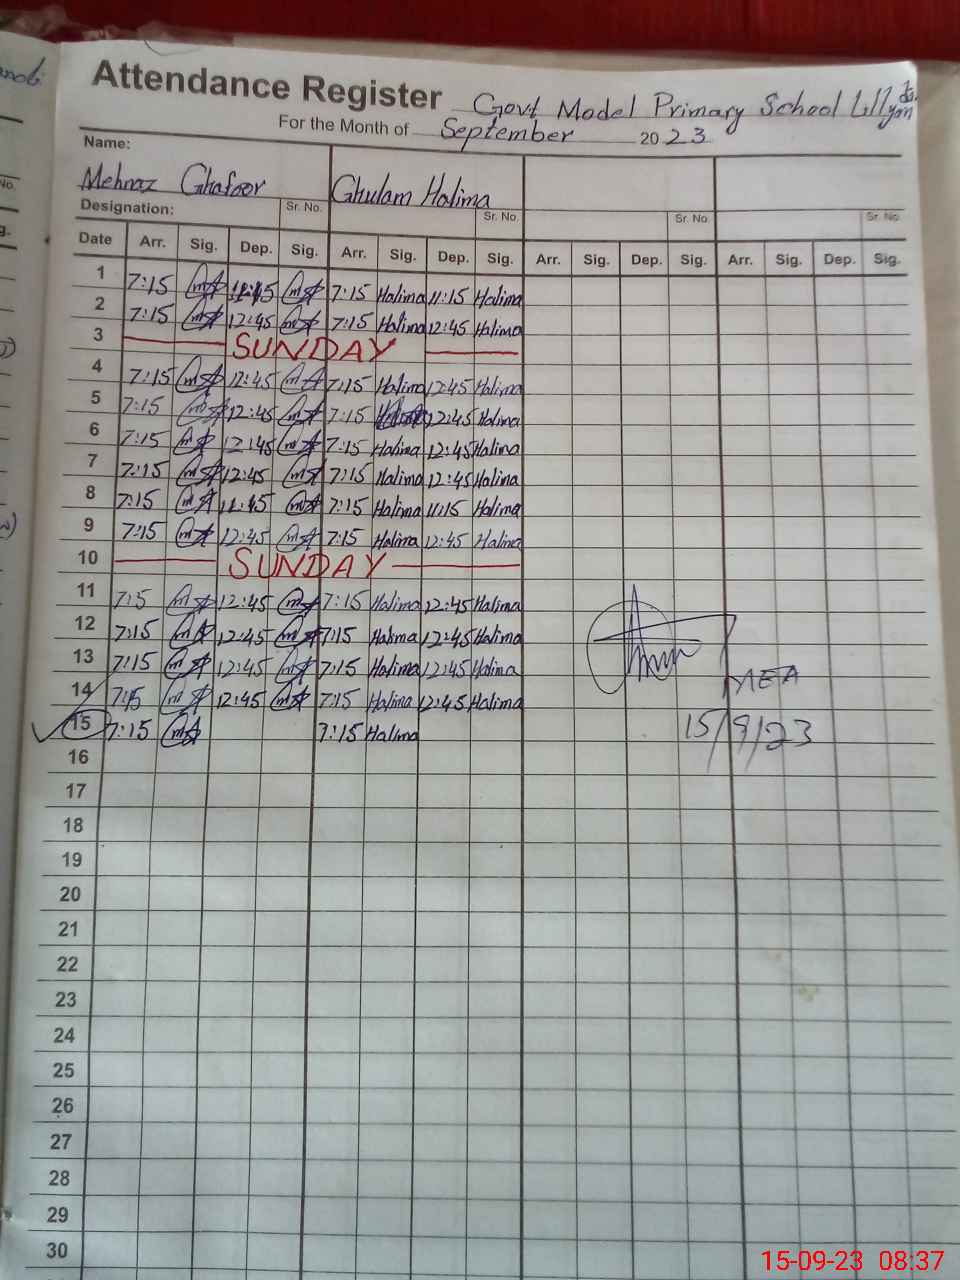 Attendance Register Govt Model Primary School Lillyani
For the Month of September 2023
Name:
Mehnaz Ghafoor Ghulam Halima
Designation: Sr. No. Sr. No. Sr. No. Sr. No.
Date Arr. Sig. Dep. Sig. Arr. Sig. Dep. Sig. Arr. Sig. Dep. Sig. Arr. Sig. Dep. Sig.
1 7:15 11:15 7:15 Halima 11:15 Halima
2 7:15 12:45 7:15 Halima 12:45 Halima
3 SUNDAY
4 7:15 12:45 7:15 Halima 12:45 Halima
5 7:15 12:45 7:15 12:45 Halima
6 7:15 12:45 7:15 Halima 12:45 Halima
7 7:15 12:45 7:15 Halima 12:45 Halima
8 7:15 11:15 7:15 Halima 11:15 Halima
9 7:15 12:45 7:15 Halima 12:45 Halima
10 SUNDAY
11 7:15 12:45 7:15 Halima 12:45 Halima
12 7:15 12:45 7:15 Halima 12:45 Halima
13 7:15 12:45 7:15 Halima 12:45 Halima
14 7:15 12:45 7:15 Halima 12:45 Halima
MEA
15 7:15 7:15 Halima 15/9/23
16
17
18
19
20
21
22
23
24
25
26
27
28
29
30
15-09-23 08:37